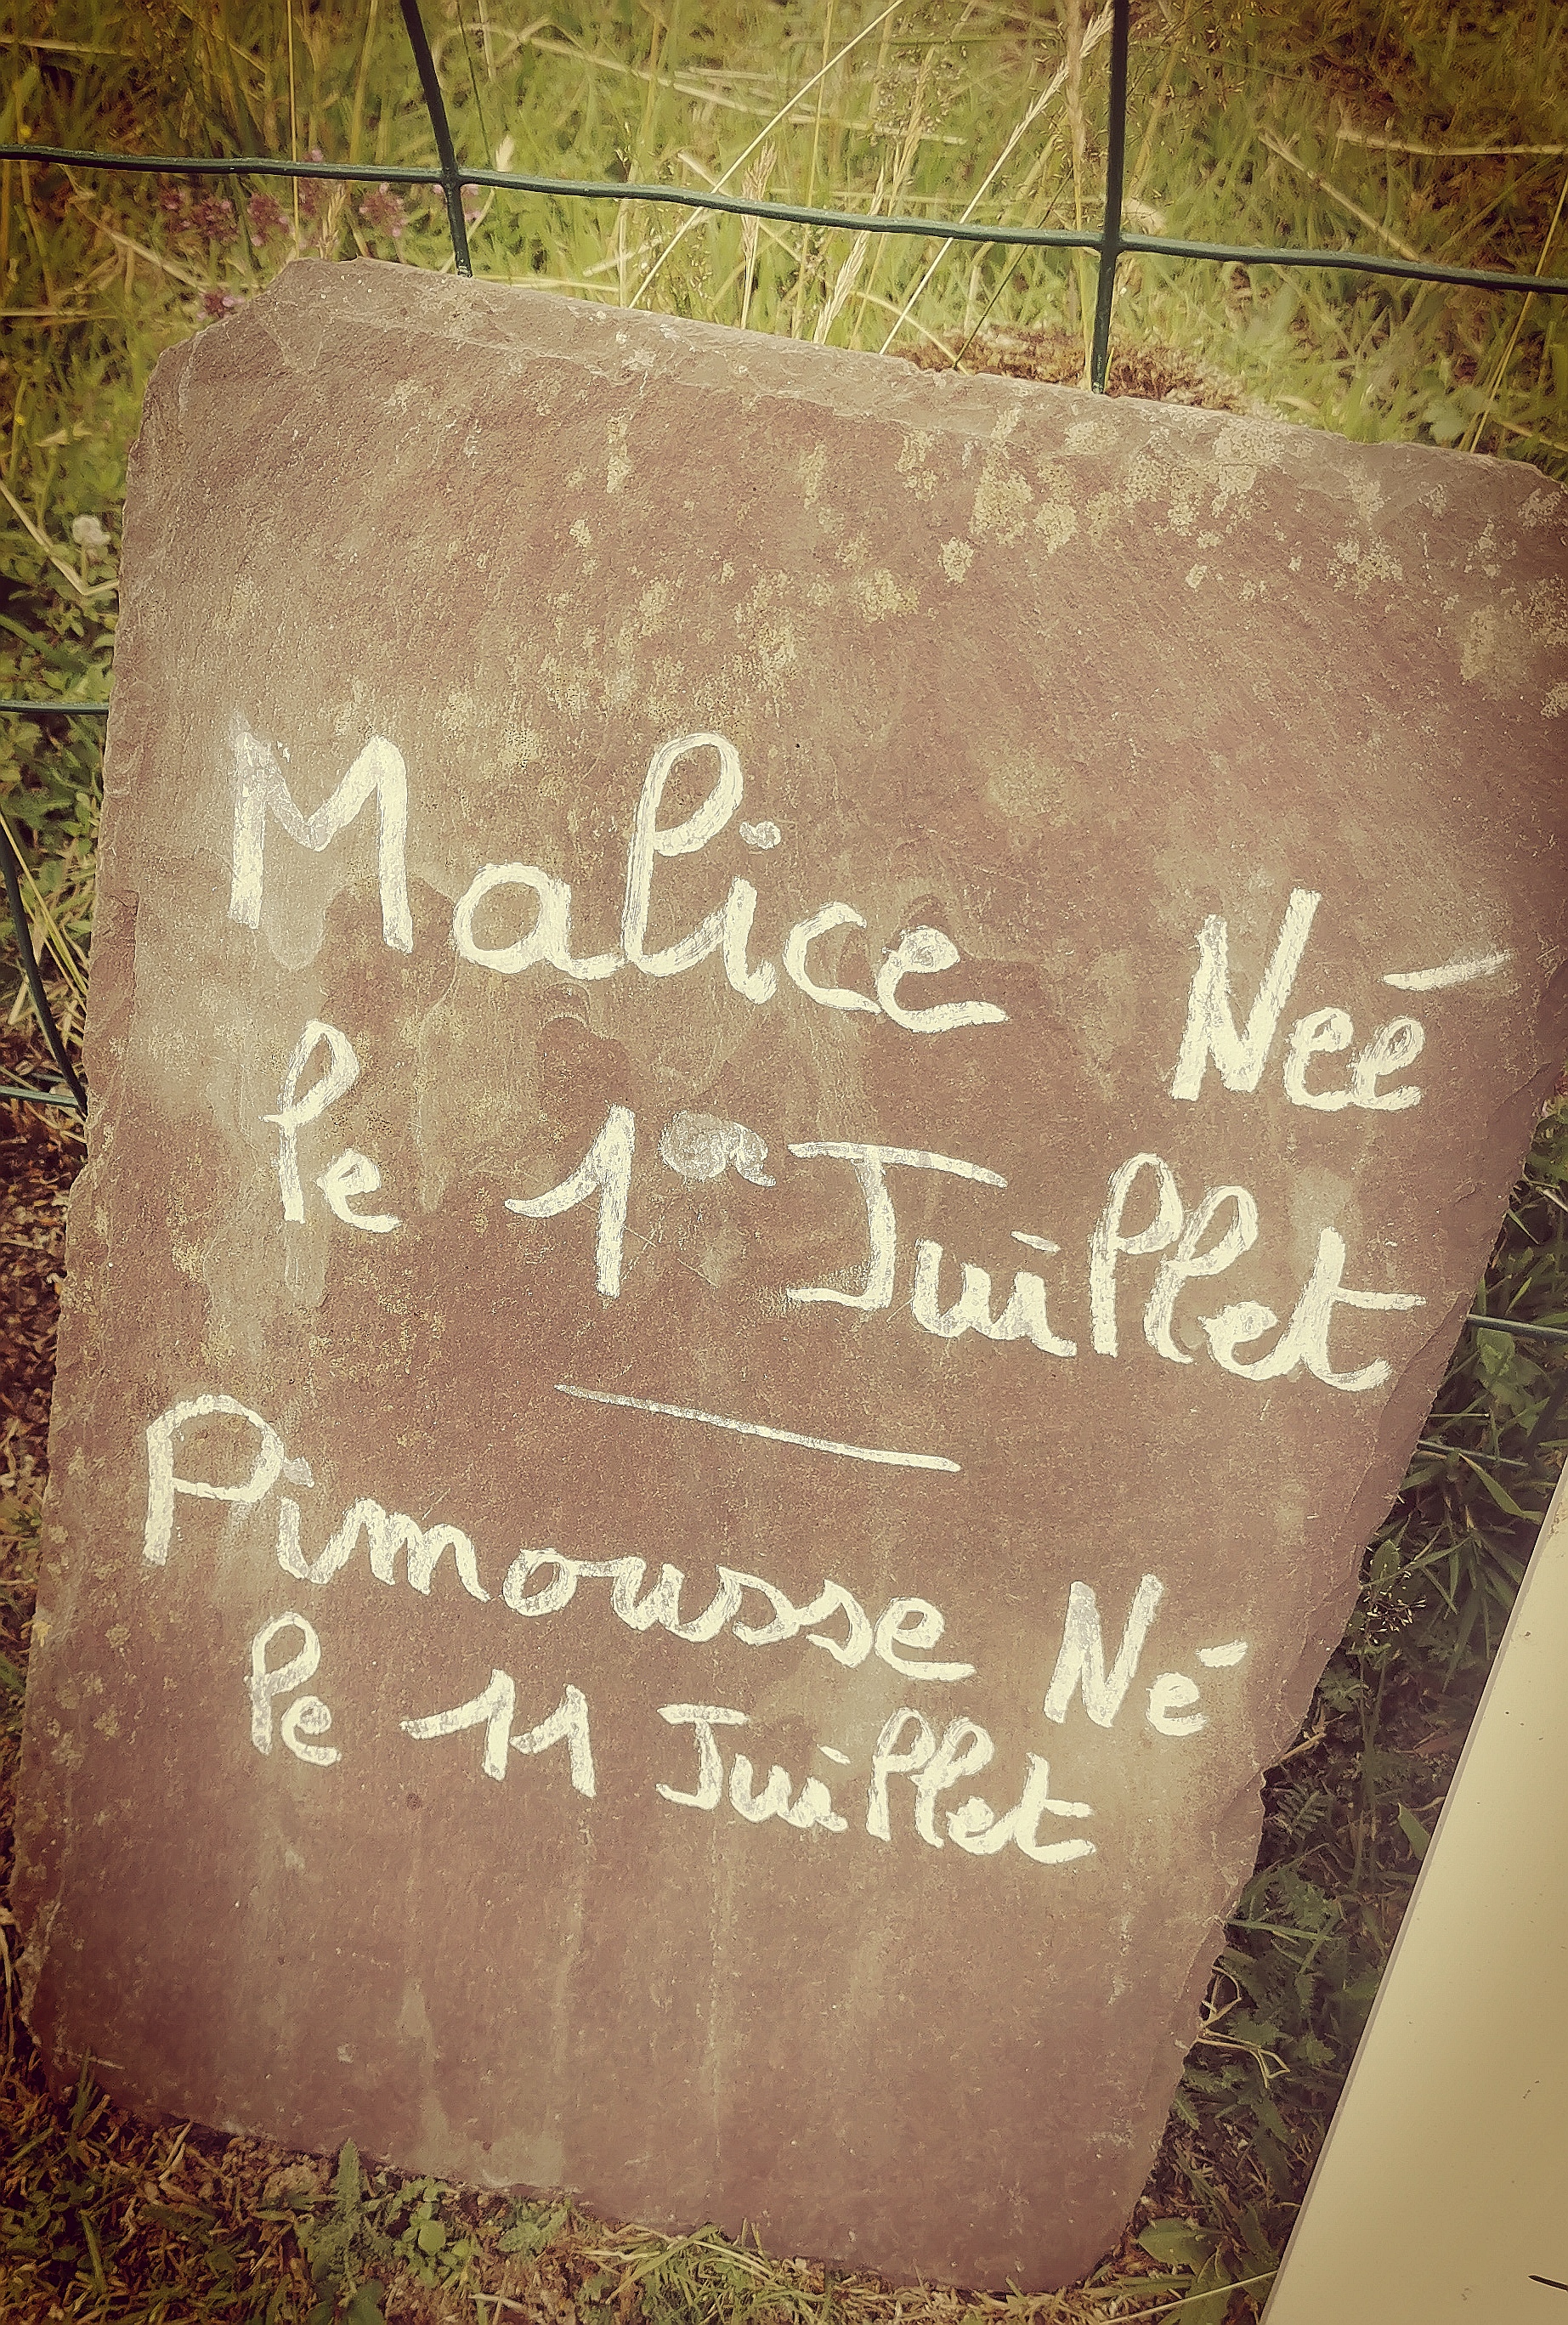 Malice Née
le 1er Juillet
Pimousse Né
le 11 Juillet